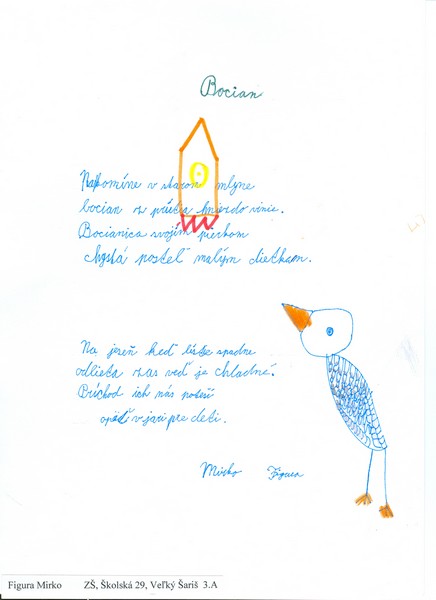 Bocian
Na komíne v starom mlyne
bocian si hniezdo vinie.
Bocianica svojím pierkom
chystá posteľ malým dietkam.
Na jeseň keď lístie spadne
odlieta zas veď je chladné.
Príchod ich nás poteší
opäť v jari pre deti.
Mirko Figura
Figura Mirko ZŠ, Školská 29, Veľký Šariš 3.A